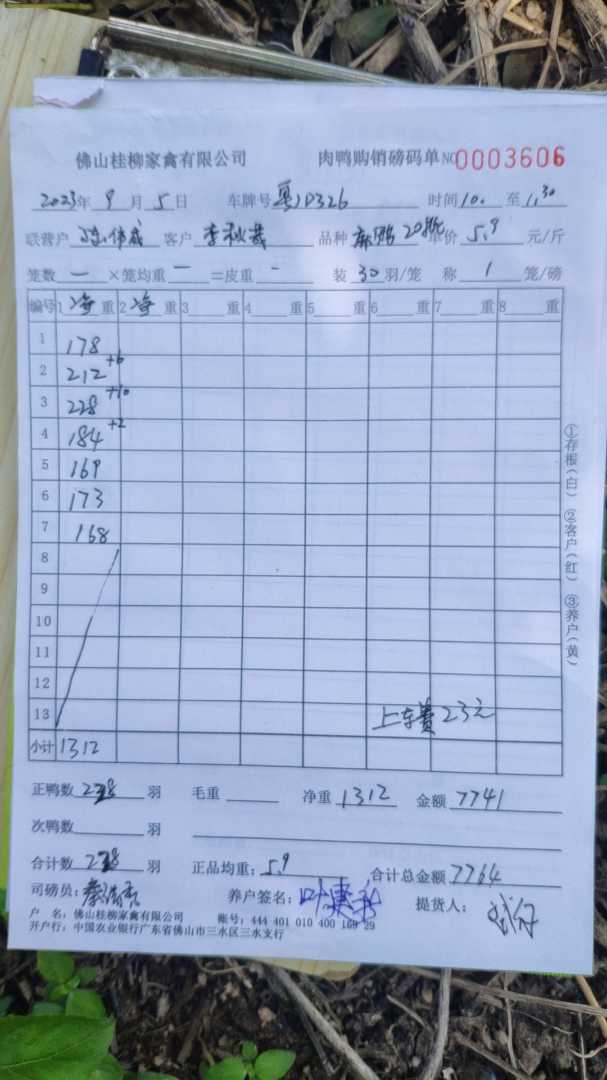 佛山桂柳家禽有限公司 肉鸭购销磅码单 NO 0003606
2023年 9月 5日 车牌号 粤JD326 时间 10. 至 1.30
联营户 伟成 客户 李秋 品种 麻鸭 单价 5.9 元/斤
笼数 一 ×笼均重 一 =皮重 - 装 30 羽/笼 称 1 笼/磅
编号 1 净 重 2 净 重 3 重 4 重 5 重 6 重 7 重 8 重
1 178
2 212 +6
3 228 +10
4 184 +2
5 169
6 173
7 168
8
9
10
11
12
13 上车费 23元
小计 1312
正鸭数 羽 毛重 净重 1312 金额 7741
次鸭数 羽
合计数 羽 正品均重: 5.9 合计总金额 7764
司磅员: 养户签名: 叶 提货人:
户 名: 佛山桂柳家禽有限公司 账号: 444 401 010 400 169 29
开户行: 中国农业银行广东省佛山市三水区三水支行
①存根(白) ②客户(红) ③养户(黄)